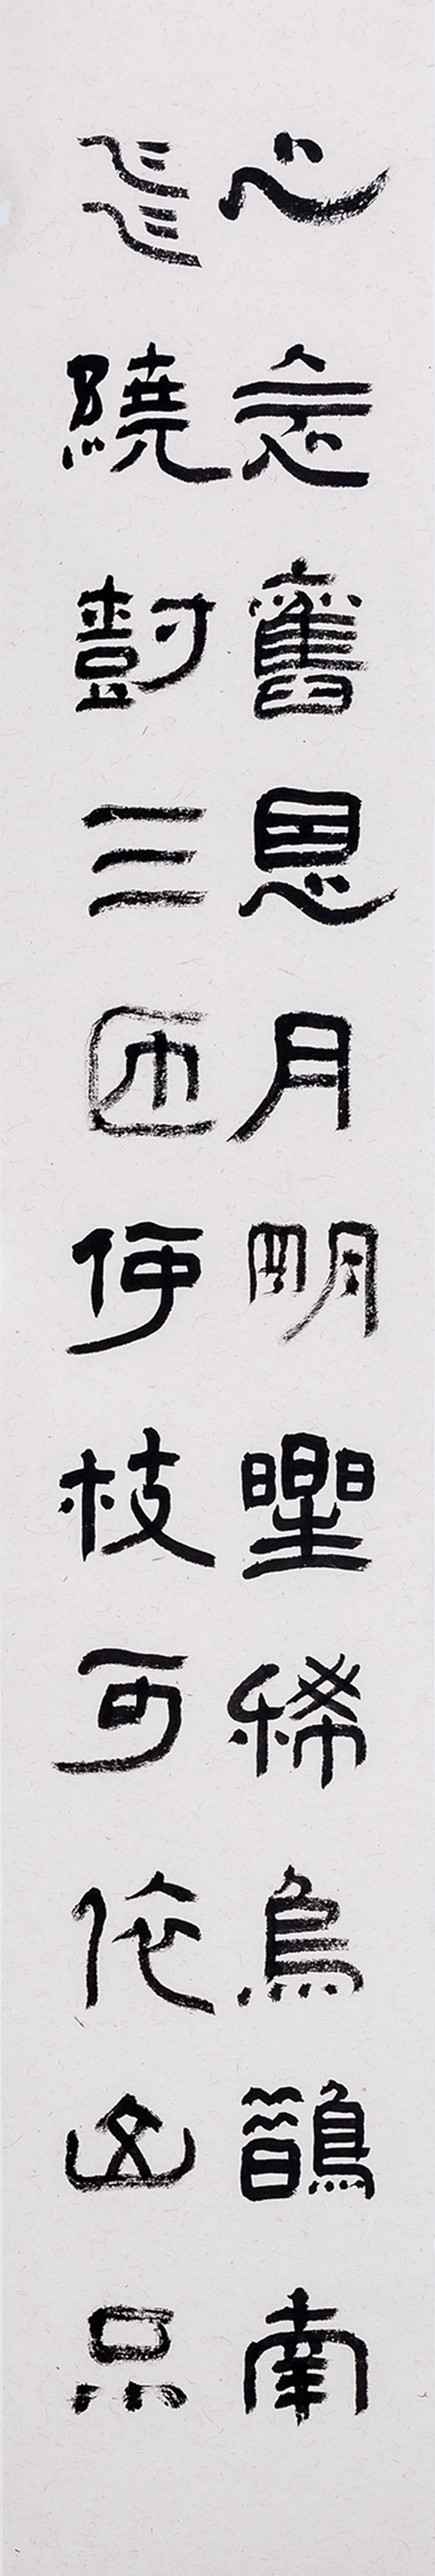 心念舊恩月明星稀烏鵲南
飛繞樹三匝何枝可依山不